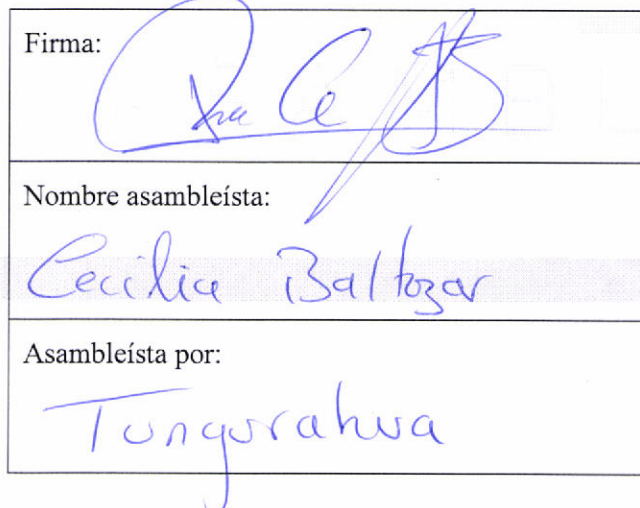 Firma:
Nombre asambleísta:
Cecilia Baltazar
Asambleísta por:
Tungurahua